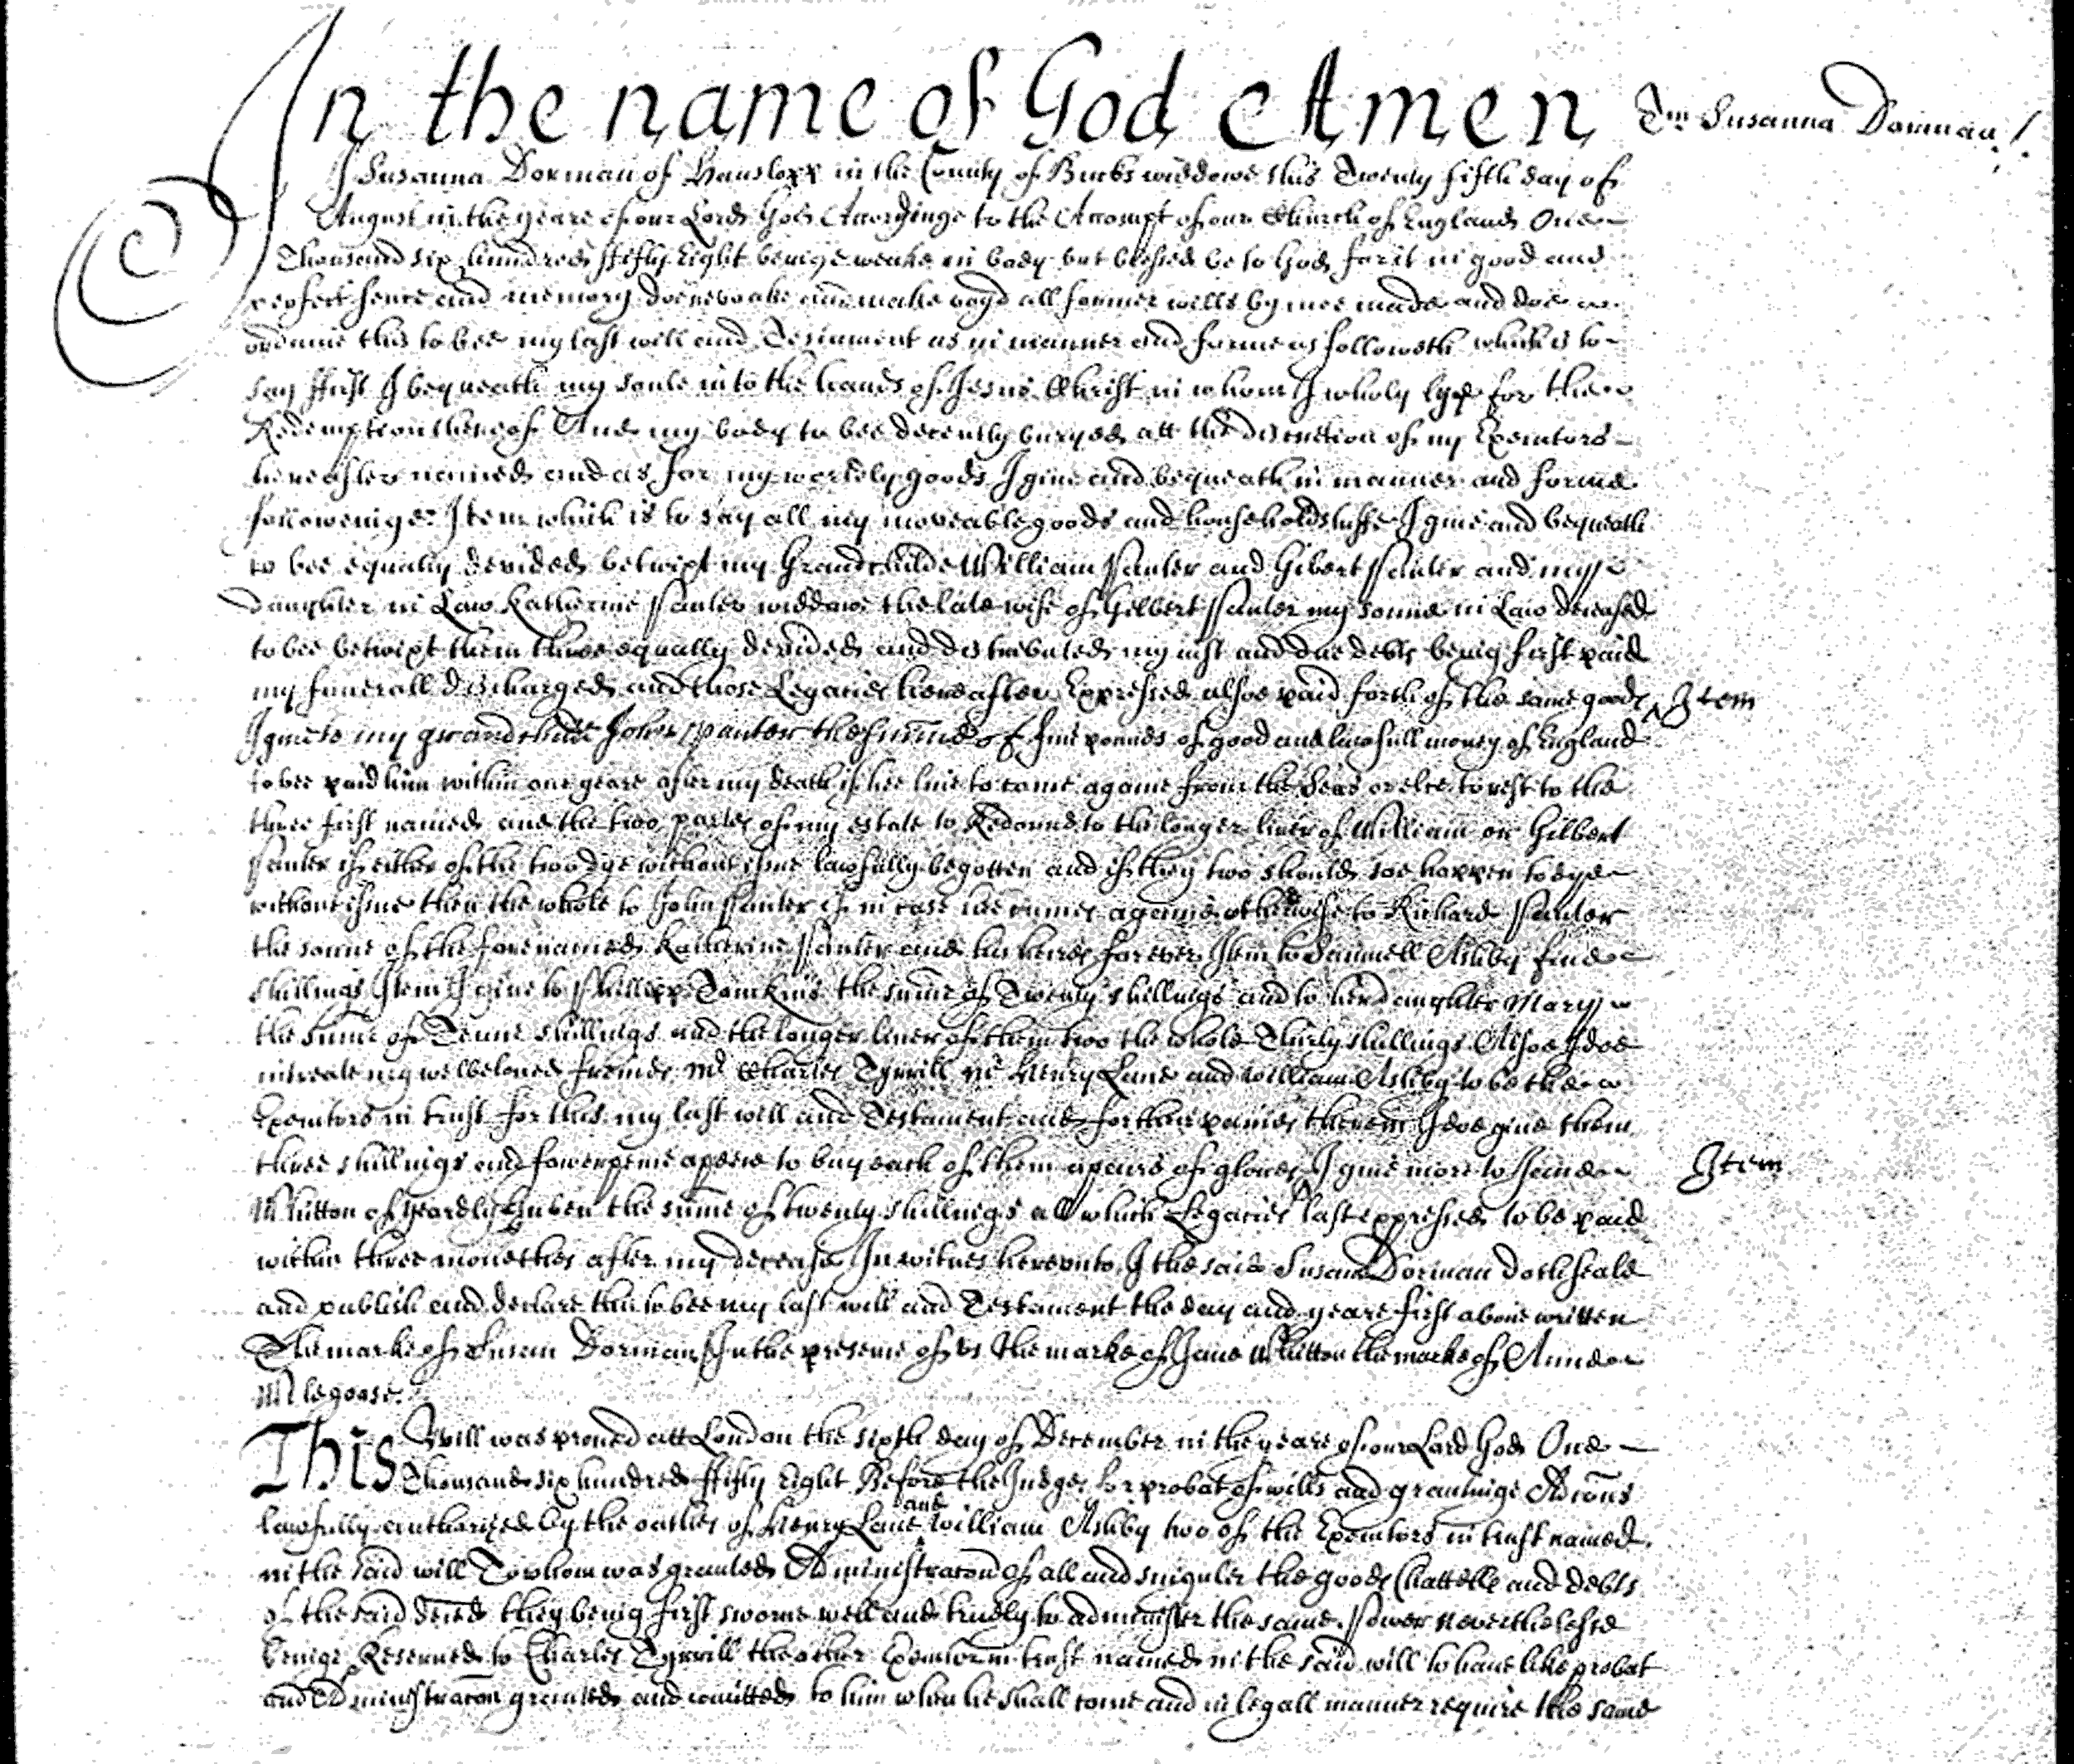 In the name of God Amen Tm Susanna Dorman
I Susanna Dorman of Hanslopp in the County of Bucks widdowe this Twenty fifth day of
August in the yeare of our Lord God Accordinge to the Accompt of our Church of England One
Thousand six hundred ffifty Eight beinge weake in body but blessed be to God for it in good and
perfect sence and memory doe revoake and make voyd all former wills by mee made and doe
ordaine this to bee my last will and Testament as in manner and forme as followeth which is to
say ffirst I bequeath my soule into the hands of Jesus Christ in whom I wholy lye for the
Redemption thereof And my body to bee decently buryed att the discretion of my Executors
hereafter named and as for my worldly goods I give and bequeath in manner and forme
followeinge Item which is to say all my moveable goods and household stuffe I give and bequeath
to bee equally devided betwixt my Grandchilde William Panter and Gilbert Panter and my
Daughter in Law Katherine Panter widdowe the late wife of Gilbert Panter my sonne in Law deceased
to bee betwixt them three equally devided and distributed my iust and due debts being first paid
my funerall discharged and those Legacies hereafter Expressed alsoe paid forth of the same goods Item
I give to my grandchilde John panter the sume of five pounds of good and lawfull money of England
to bee paid him within one yeare after my death if hee live to come againe from the Seas or else to rest to the
three first named and the two partes of my estate to Redound to the longer liver of William or Gilbert
Panter if either of the two dye without issue lawfully begotten and if they two should soe happen to dye
without issue then the whole to John Panter if in case hee comes againe otherwise to Richard Panter
the sonne of the forenamed Katherine Panter and his heires for ever Item to Samuell Ashby five
shillings Item I give to Phillipp Tomkins the sume of Twenty shillings and to her daughter Mary
the sume of Tenne shillings and the longer liver of them two the whole Thirty shillings Alsoe I doe
intreate my welbeloved freinds Mr Charles Tyrrill Mr Henry Lane and William Ashby to be the
Executors in trust for this my last will and Testament and for their paines therein I doe give them
three shillings and fowerpence apeece to buy each of them a paire of gloves I give more to Jane Item
Whitton of Yeardly Guben the sume of twenty shillings all which Legacies last expressed to be paid
within three monethes after my decease In witnes hereunto I the said Susan Dorman doth seale
and publish and declare this to bee my last will and Testament the day and yeare first above written
The marke of Susan Dorman In the presence of us the marke of Jane Whitton the marke of Anne
Mlegoose
This will was proved att London the sixth day of December in the yeare of our Lord God One
Thousand six hundred ffifty Eight Before the Judges for probat of wills and grantinge Adcons
lawfully authorized by the oathes of Henry Lane and William Ashby two of the Executors in trust named
in the said will To whom was granted Administracon of all and singuler the goods Chattells and debts
of the said deced they being first sworne well and truely to administer the same Power neverthelesse
beinge Reserved to Charles Tyrrill the other Executor in trust named in the said will to have like probat
and Administracon granted and comitted to him when he shall come and in legall manner require the same